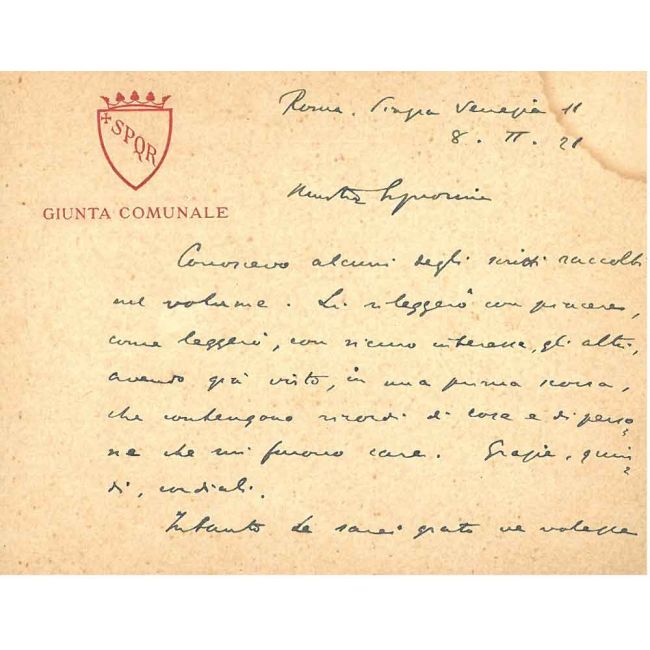 SPQR
GIUNTA COMUNALE
Roma. Piazza Venezia 11
8. II. 21
Conoscevo alcuni degli scritti raccolti
nel volume. Li rileggerò con piacere,
come leggerò, con sicuro interesse, gli altri,
avendo già visto, in una prima scorsa,
che contengono ricordi di cose e di perso
ne che mi furono care. Grazie, quin
di, cordiali.
Intanto Le sarei grato se volesse